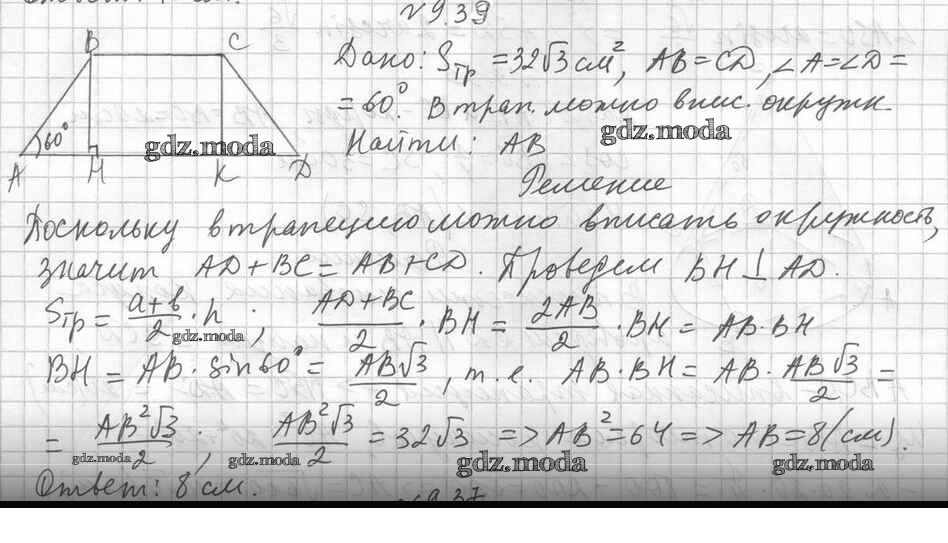 № 9.39
B C
Дано: Sтр = 32√3 см², AB = CD, ∠A = ∠D =
= 60°. В трап. можно впис. окружн.
60°
gdz.moda
gdz.moda
Найти: AB
A H K D
Решение
Поскольку в трапецию можно вписать окружность,
значит AD + BC = AB + CD. Проведем BH ⊥ AD.
Sтр = (a+b)/2 · h ; (AD+BC)/2 · BH = 2AB/2 · BH = AB·BH
gdz.moda
BH = AB · sin60° = AB√3/2, т.е. AB·BH = AB · AB√3/2 =
= AB²√3/2 ; AB²√3/2 = 32√3 => AB² = 64 => AB = 8 (см).
gdz.moda gdz.moda gdz.moda gdz.moda
Ответ: 8 см.
№ 9.37